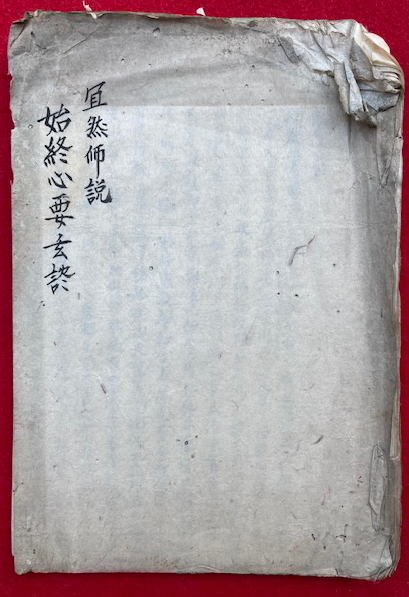 冝然師説
始終心要玄談